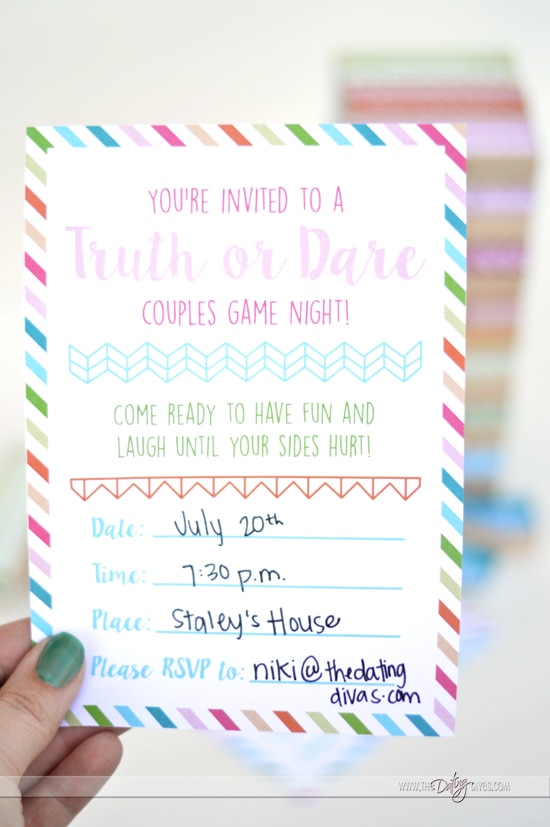 YOU'RE INVITED TO A
Truth or Dare
COUPLES GAME NIGHT!
COME READY TO HAVE FUN AND
LAUGH UNTIL YOUR SIDES HURT!
Date: July 20th
Time: 7:30 p.m.
Place: Staley's House
Please RSVP to: niki@thedating
divas.com
WWW.THEDatingDIVAS.COM